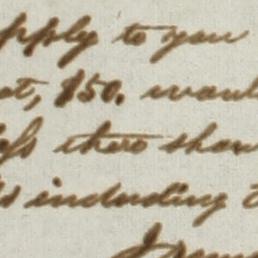 pply to you
at, $50. woul
ss there shou
s including t